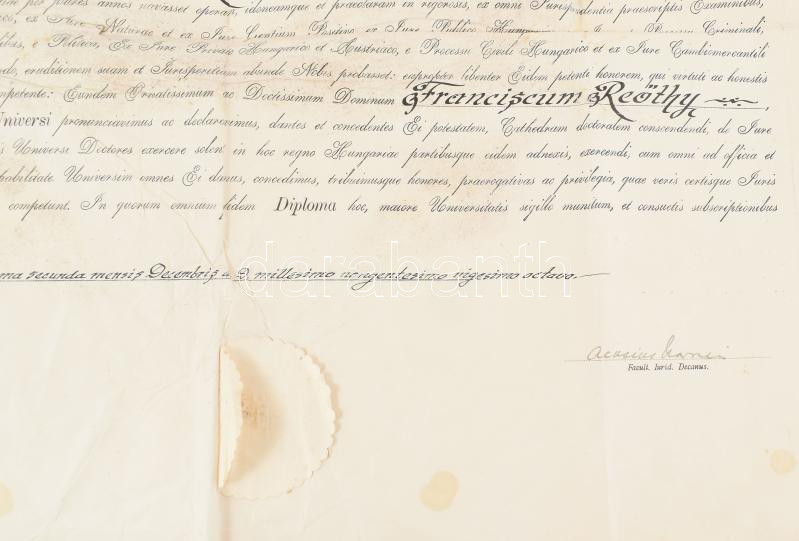 per plures annos navasset operam, idoneamque et praeclaram in rigorosis, ex omni Jurisprudentia praescriptis Examinibus,
ex Jure Naturae et ex Jure Gentium Positivo ex Jure Publico Criminali,
e Politica, Ex Jure Privato Hungarico et Austriaco, e Processu Civili Hungarico et ex Jure Cambiomercantili
eruditionem suam et Jurisperitiam abunde Nobis probasset: eapropter libenter Eidem petenti honorem, qui virtuti ac honestis
Eundem Ornatissimum ac Doctissimum Dominum Franciscum Reöthy,
Universi pronunciavimus ac declaravimus, dantes et concedentes Ei potestatem, Cathedram doctoralem conscendendi, de Jure
Universi Doctores exercere solent in hoc regno Hungariae partibusque eidem adnexis, exercendi, cum omni ad officia et
habilitate. Universim omnes Ei damus, concedimus, tribuimusque honores, praerogativas ac privilegia, quae veris certisque Juris
competunt. In quorum omnium fidem Diploma hoc, maiore Universitatis sigillo munitum, et consuetis subscriptionibus
ma secunda mensis Decembris a D millesimo nongentesimo vigesimo octavo.
darabanth
Facult. Iurid. Decanus.